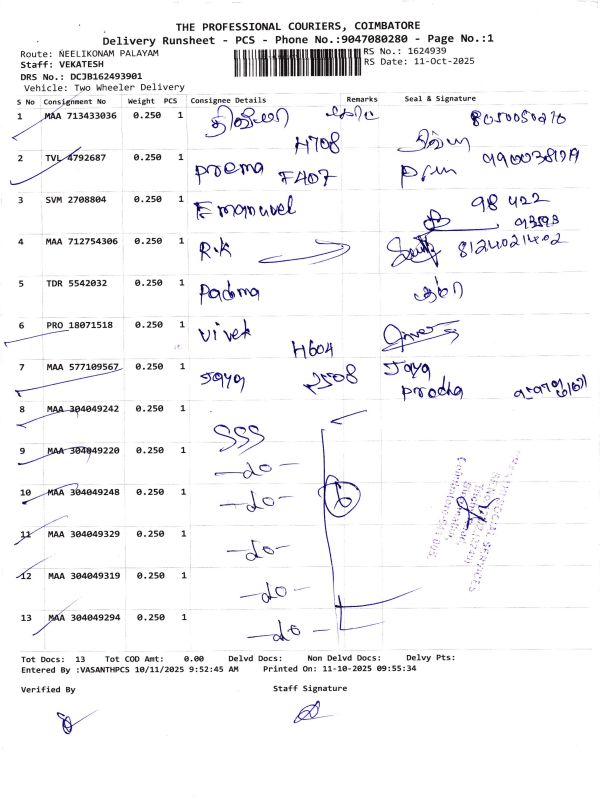 THE PROFESSIONAL COURIERS, COIMBATORE
Delivery Runsheet - PCS - Phone No.:9047080280 - Page No.:1
Route: NEELIKONAM PALAYAM
RS No.: 1624939
Staff: VEKATESH
RS Date: 11-Oct-2025
DRS No.: DCJB162493901
Vehicle: Two Wheeler Delivery
S No Consignment No Weight PCS Consignee Details Remarks Seal & Signature
1 MAA 713433036 0.250 1
H708
2 TVL 4792687 0.250 1 Prema F407
3 SVM 2708804 0.250 1 Emanuvel 98422
93593
4 MAA 712754306 0.250 1 R.K 8124021402
5 TDR 5542032 0.250 1 Padma
6 PRO 18071518 0.250 1 Vivek
H604
7 MAA 577109567 0.250 1 Jaya 2508 Jaya
8 MAA 304049242 0.250 1 SSS
9 MAA 304049220 0.250 1 -do-
10 MAA 304049248 0.250 1 -do- 6
11 MAA 304049329 0.250 1 -do-
12 MAA 304049319 0.250 1 -do-
13 MAA 304049294 0.250 1 -do-
Tot Docs: 13 Tot COD Amt: 0.00 Delvd Docs: Non Delvd Docs: Delvy Pts:
Entered By :VASANTHPCS 10/11/2025 9:52:45 AM Printed On: 11-10-2025 09:55:34
Verified By Staff Signature